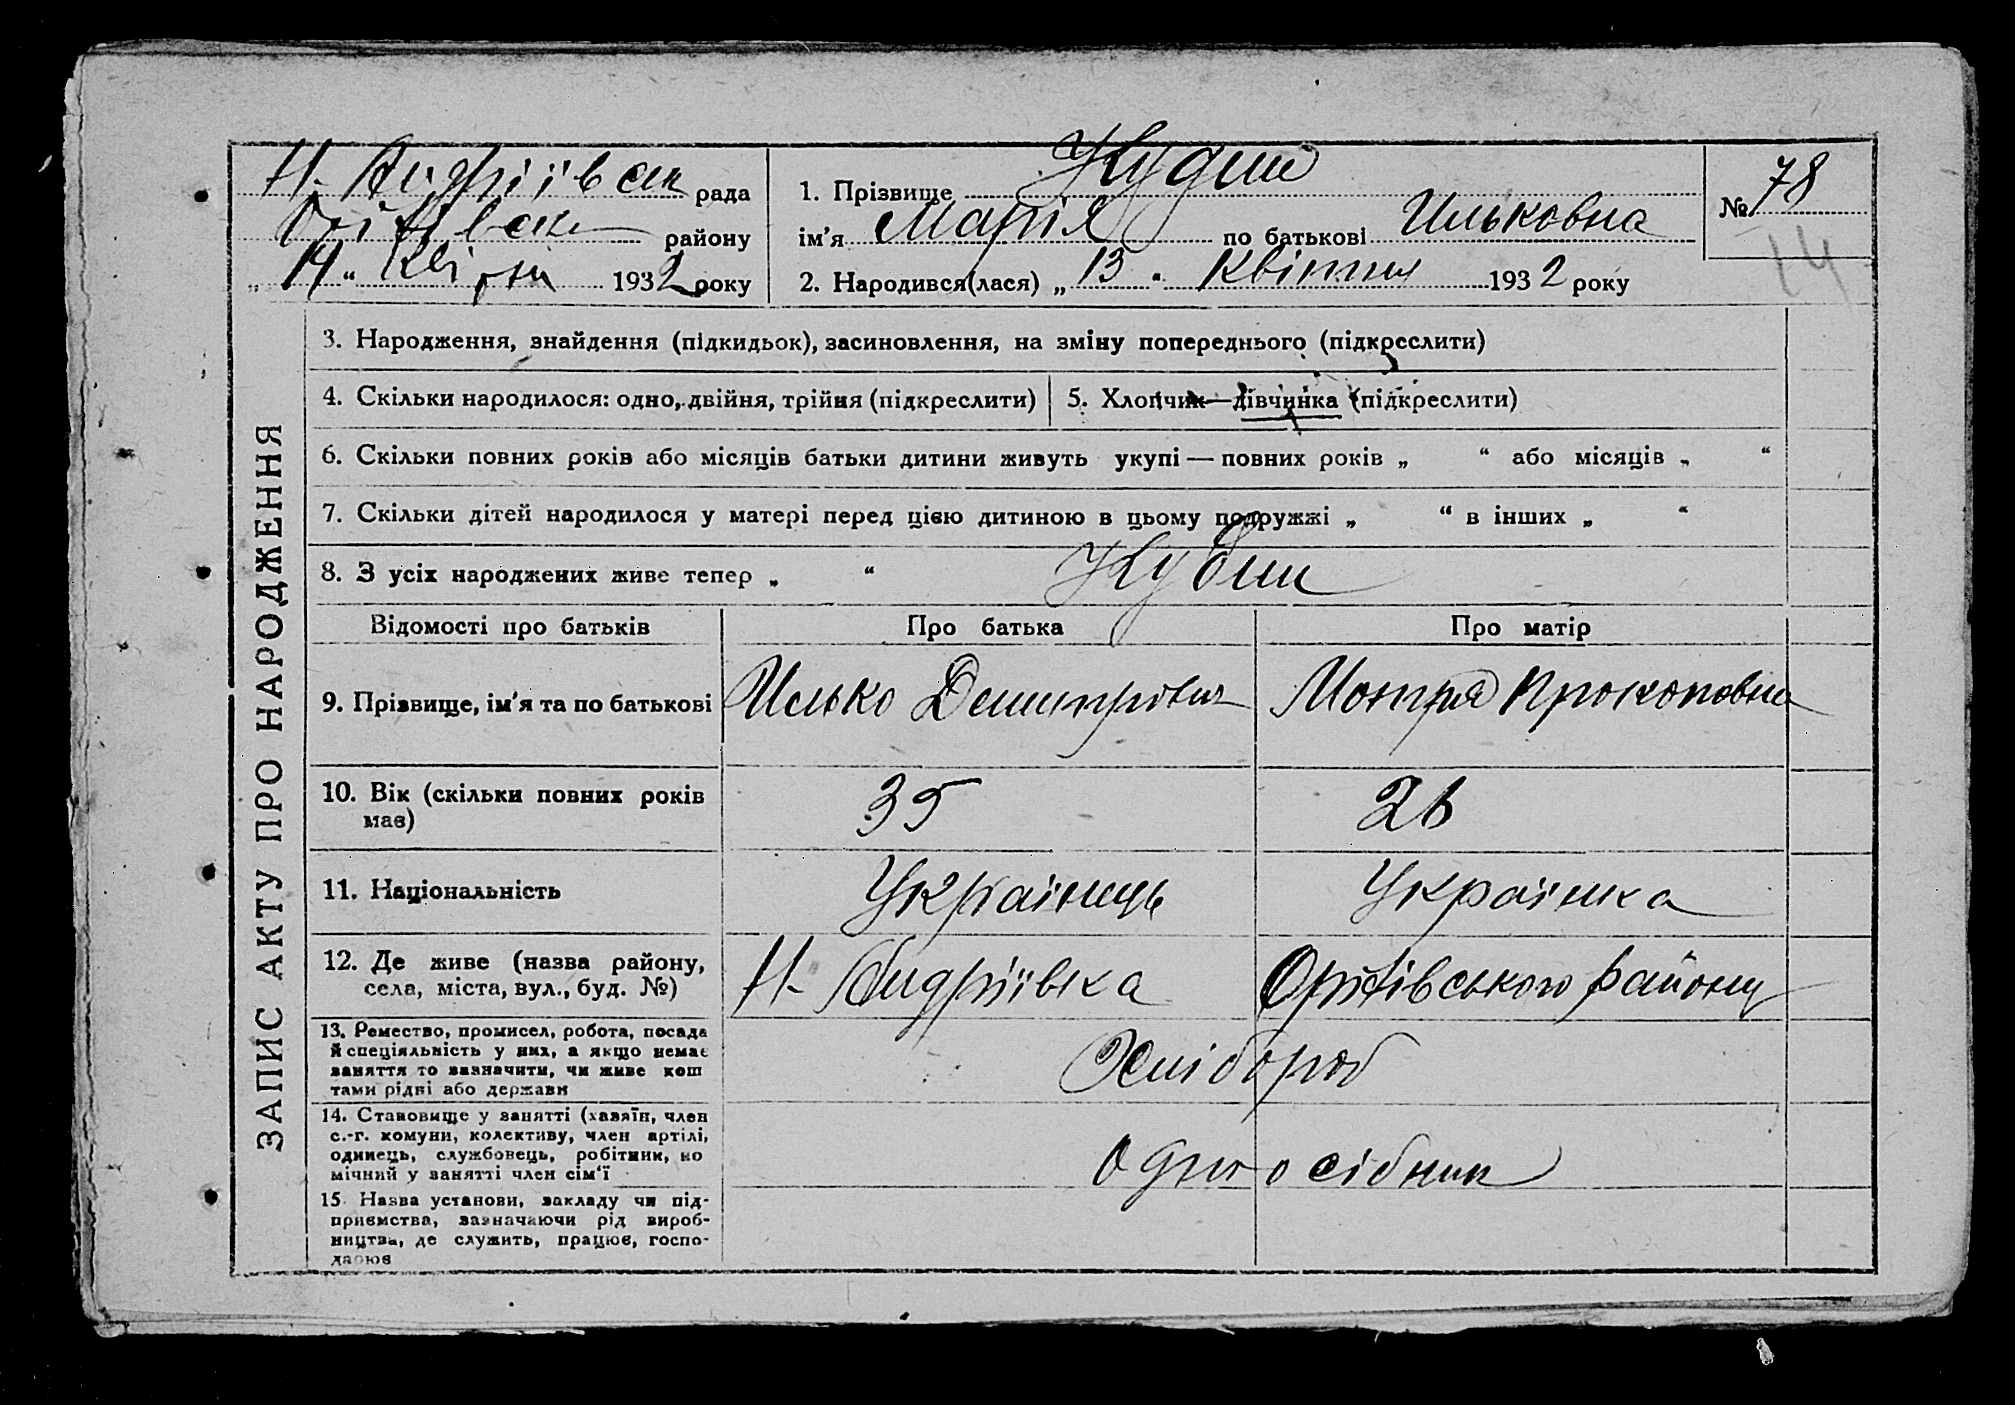 Н. Андріївськ рада
району
„ 14 “ Квітня 1932 року
1. Прізвище Кудин
ім'я Марія по батькові Ильковна
2. Народився(лася) „ 13 “ Квітня 1932 року
№ 78
14
ЗАПИС АКТУ ПРО НАРОДЖЕННЯ
3. Народження, знайдення (підкидьок), засиновлення, на зміну попереднього (підкреслити)
4. Скільки народилося: одно, двійня, трійня (підкреслити)
5. Хлопчик—дівчинка (підкреслити)
6. Скільки повних років або місяців батьки дитини живуть укупі — повних років „ “ або місяців „ “
7. Скільки дітей народилося у матері перед цією дитиною в цьому подружжі „ “ в інших „ “
8. З усіх народжених живе тепер „ “ Кудин
Відомості про батьків Про батька Про матір
9. Прізвище, ім'я та по батькові Илько Демитрович Мотря Прокоповна
10. Вік (скільки повних років має) 35 26
11. Національність Українець Українка
12. Де живе (назва району, села, міста, вул., буд. №) Н-Андріївка Оржівського району
13. Ремество, промисел, робота, посада
й спеціяльність у них, а якщо немає
заняття то зазначити, чи живе кош
тами рідні або держави
Хлібороб
14. Становище у занятті (хазяїн, член
с.-г. комуни, колективу, член артілі,
одинець, службовець, робітник, по
мічний у занятті член сім'ї
Одноосібник
15. Назва установи, закладу чи під-
приємства, зазначаючи рід вироб-
ництва, де служить, працює, госпо-
дарює